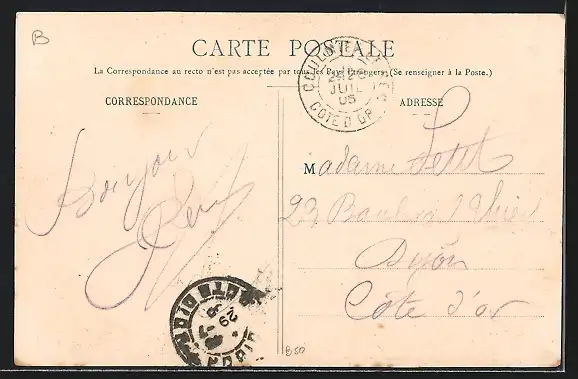 B
CARTE POSTALE
La Correspondance au recto n'est pas acceptée par tous les Pays étrangers. (Se renseigner à la Poste.)
CORRESPONDANCE
ADRESSE
JUIL
05
COTE D'OR
Bonjour
Madame Petit
23
Dijon
Côte d'or
29
B50